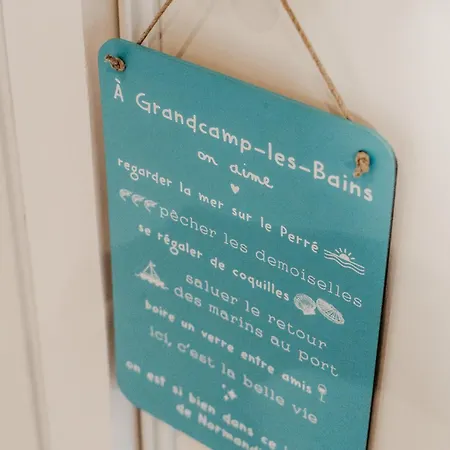 À Grandcamp-les-Bains
on aime
regarder la mer sur le Perré
pêcher les demoiselles
se régaler de coquilles
saluer le retour
des marins au port
boire un verre entre amis
ici, c'est la belle vie
on est si bien dans ce
de Normandi